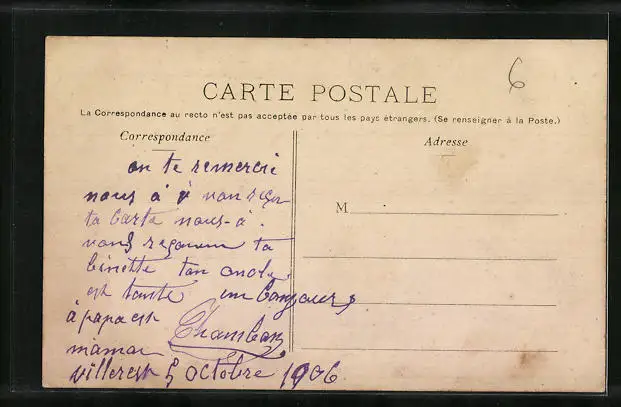 6
CARTE POSTALE
La Correspondance au recto n'est pas acceptée par tous les pays étrangers. (Se renseigner à la Poste.)
Correspondance
Adresse
on te remercie
nous à
M
ta carte nous à
ta
binette ton oncle
est tante un bonjour
à papa est Chambon
maman
villerest 5 octobre 1906